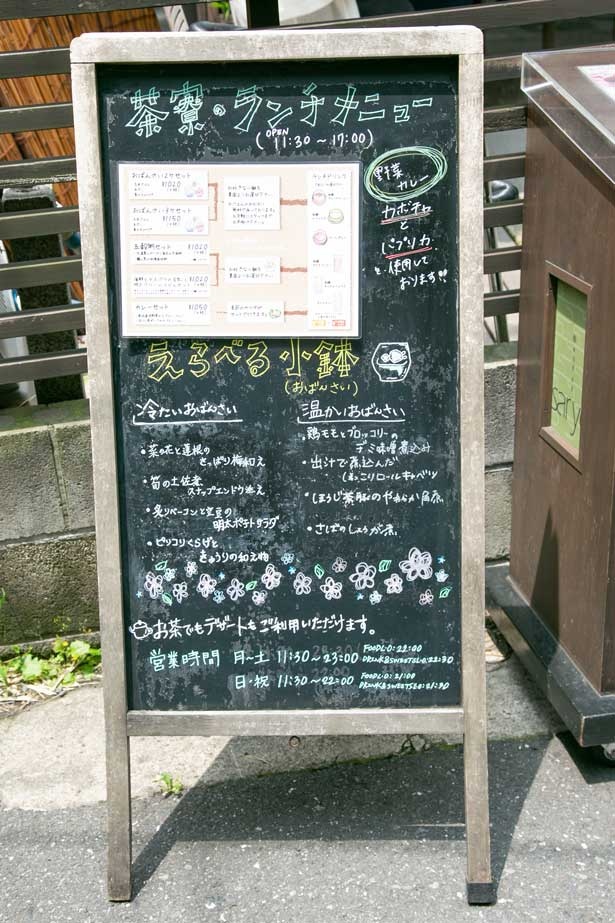 茶寮のランチメニュー
OPEN
(11:30〜17:00)
野菜
カレー
カボチャ
と
パプリカ
を使用して
おります!!
おばんざい2ケセット
¥1020
¥1150
五穀粥セット ¥1020
カレーセット ¥1050
えらべる小鉢
(おばんざい)
冷たいおばんざい
・菜の花と蓮根の
さっぱり梅和え
・筍の土佐煮
スナップエンドウ添え
・炙りベーコンと空豆の
明太ポテトサラダ
・ピリコリくらげと
きゅうりの和え物
温かいおばんざい
・鶏モモとブロッコリーの
デミ味噌煮込み
・出汁で煮込んだ
ほっこりロールキャベツ
・ほうじ茶豚のやわらか角煮
・さばのしょうが煮
お茶でもデザートもご利用いただけます。
営業時間 月〜土 11:30〜23:00 FOOD L.O:22:00
DRINK&SWEETS L.O:22:30
日・祝 11:30〜22:00 FOOD L.O:21:00
DRINK&SWEETS L.O:21:30